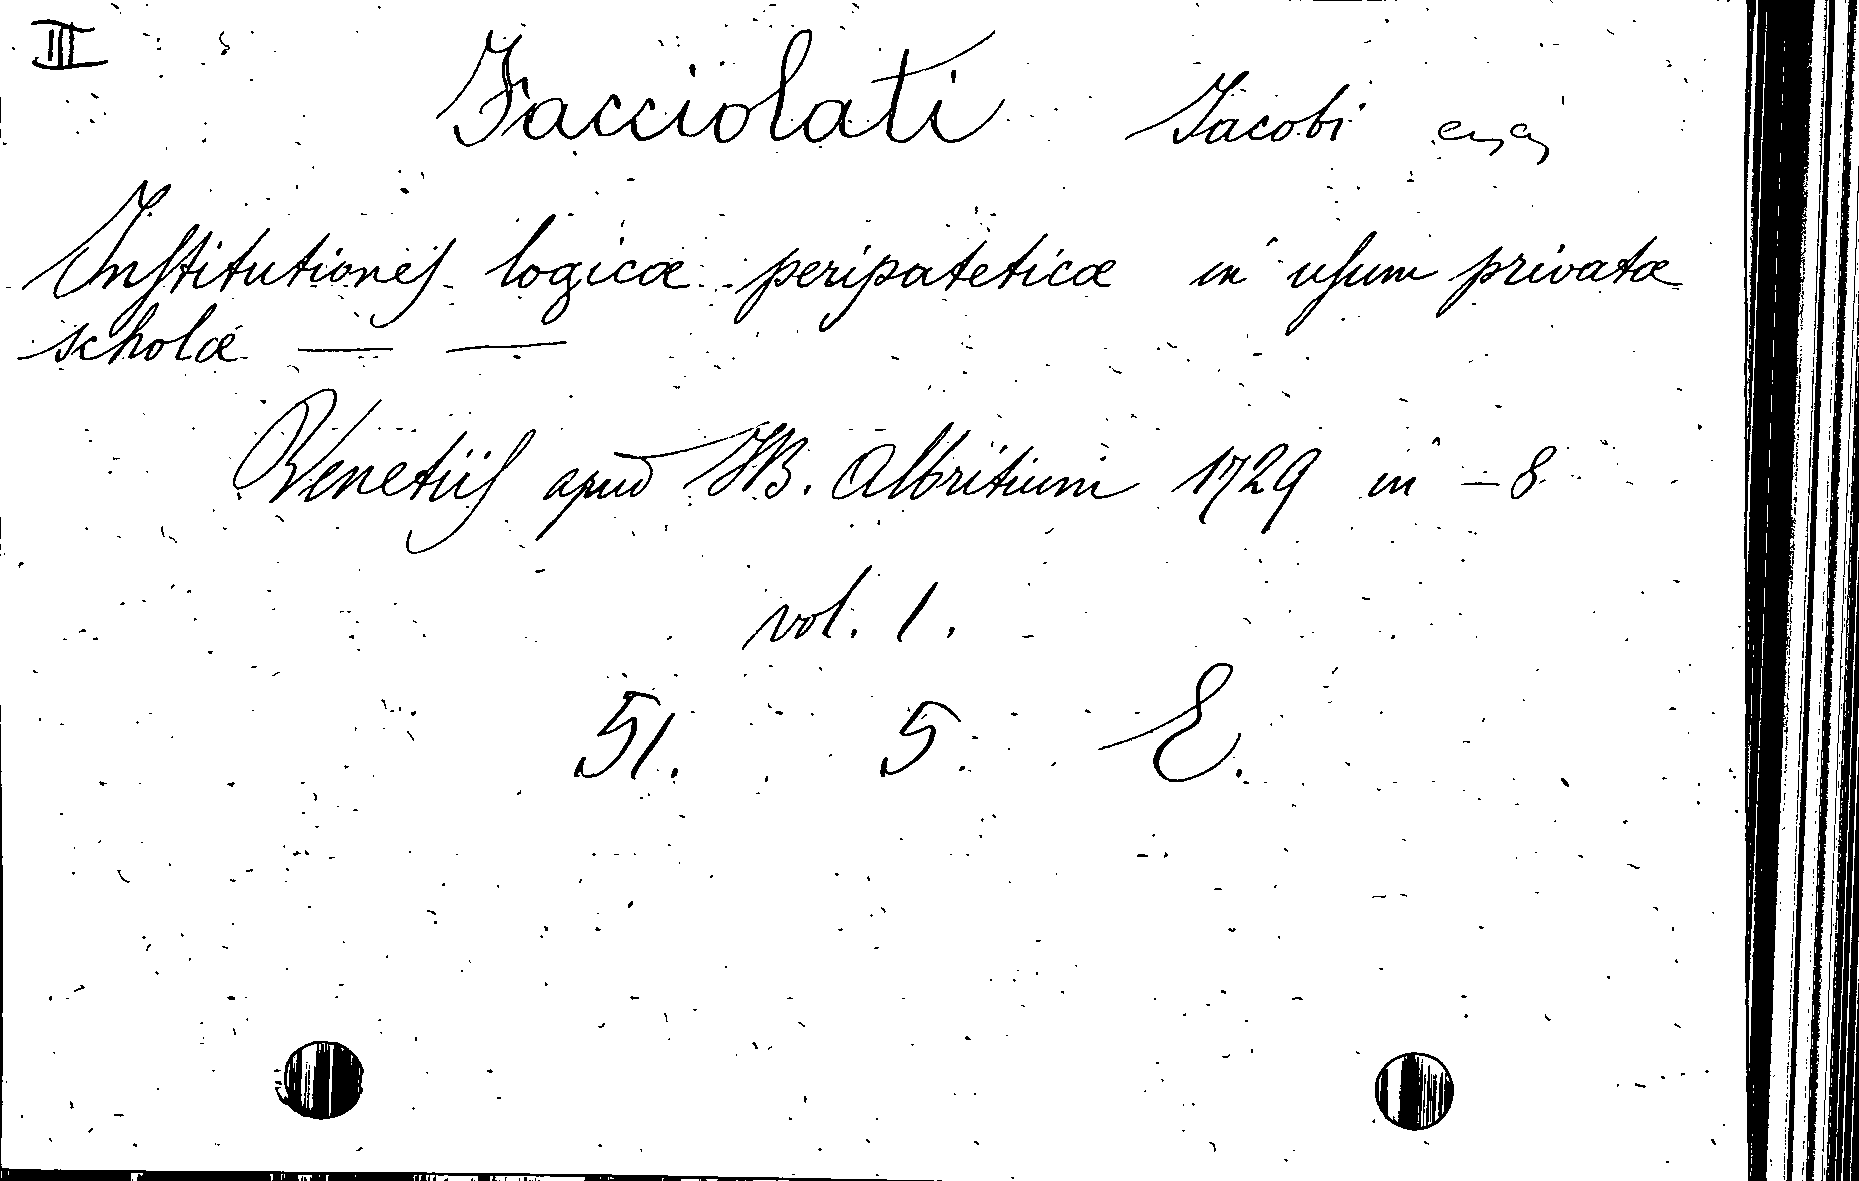 III
Facciolati Jacobi
Institutiones logicæ peripateticæ in usum privatæ
scholæ — —
Venetiis apud JB. Albritium 1729 in - 8
vol. 1.
51. 5. E.